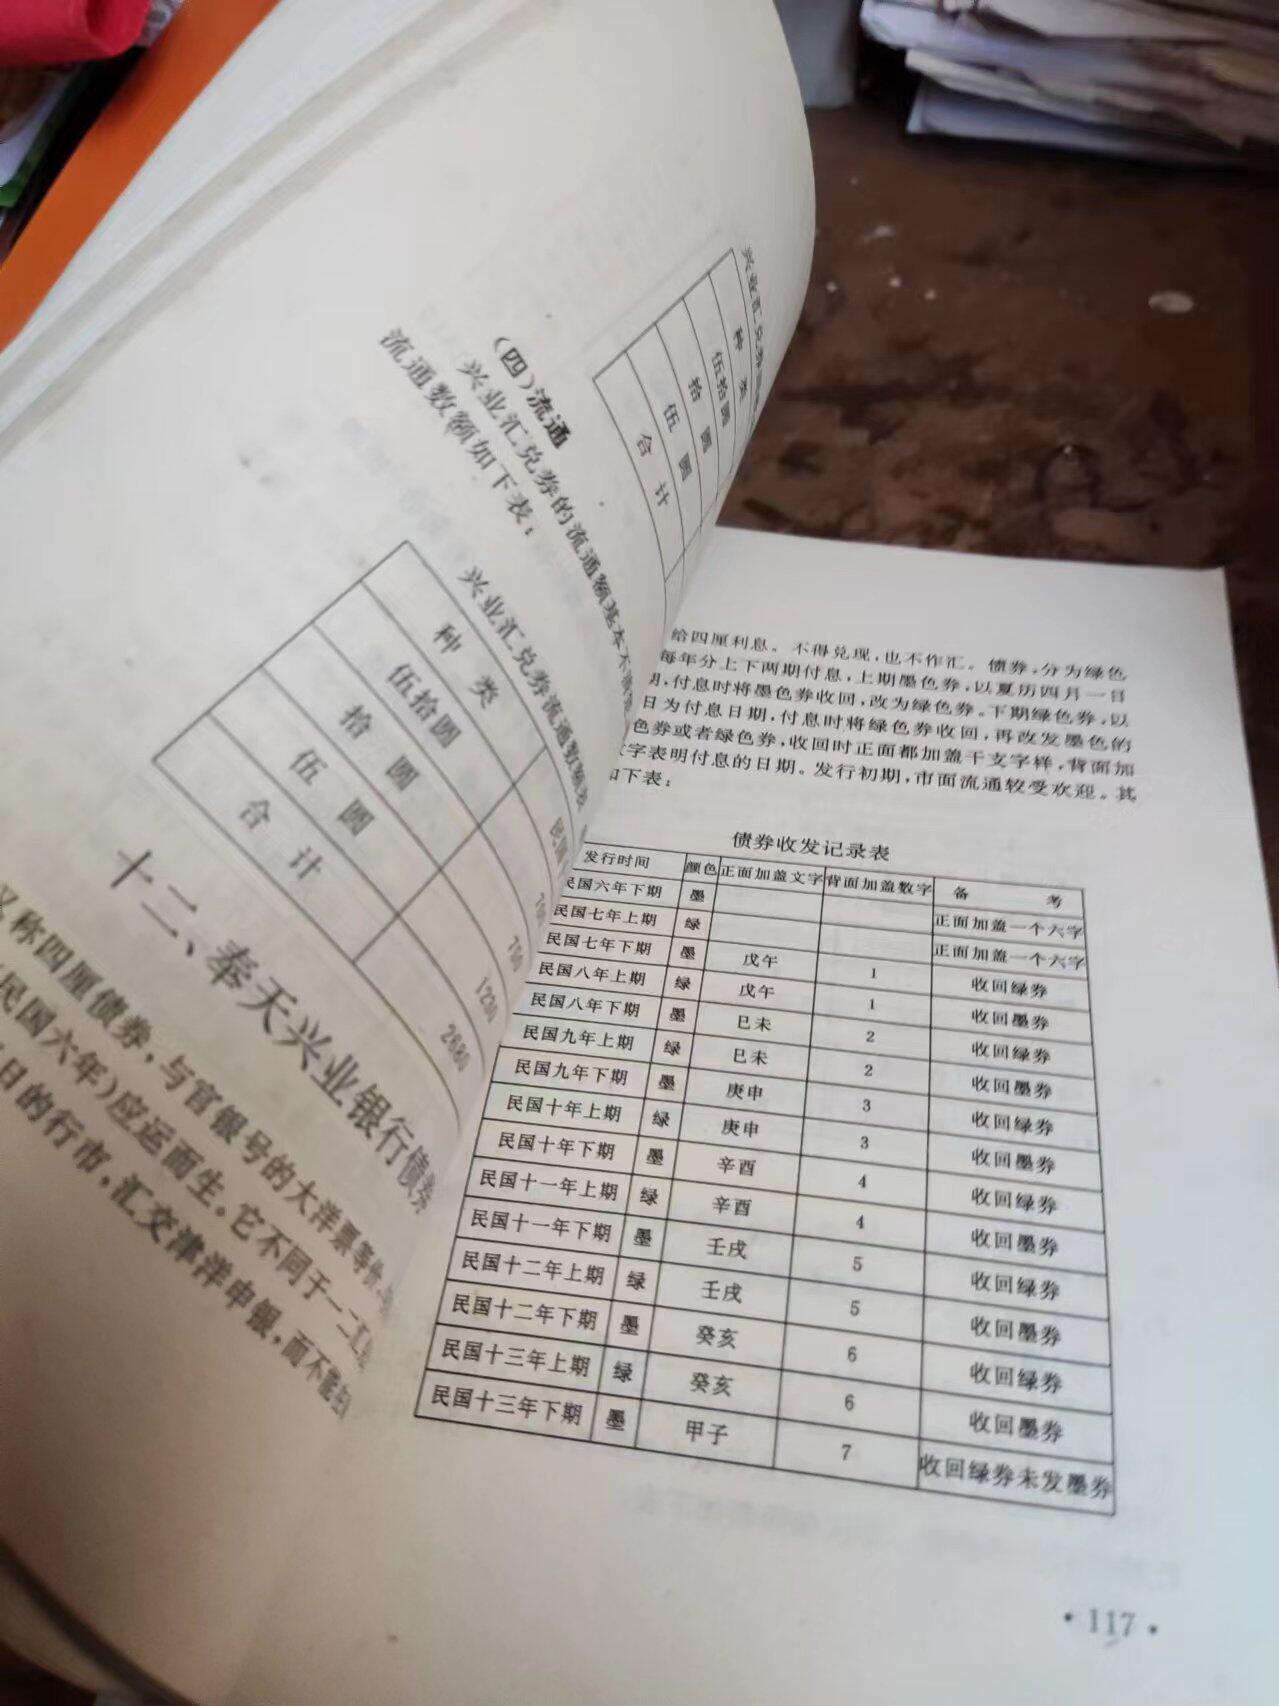 兴业汇兑券
种 类
伍拾圆
拾 圆
伍 圆
合 计
(四)流通
兴业汇兑券的流通额基本不
流通数额如下表：
兴业汇兑券流通数额表
种 类
伍拾圆
拾 圆
伍 圆
合 计
700
1230
2680
十二、奉天兴业银行债券
又称四厘债券，与官银号的大洋票等价，
民国六年)应运而生。它不同于一二
日的行市，汇交津洋申银，而不能
给四厘利息。不得兑现，也不作汇。债券，分为绿色
每年分上下两期付息，上期墨色券，以夏历四月一日
期，付息时将墨色券收回，改为绿色券。下期绿色券，以
日为付息日期，付息时将绿色券收回，再改发墨色的
色券或者绿色券，收回时正面都加盖干支字样，背面加
字表明付息的日期。发行初期，市面流通较受欢迎。其
如下表：
债券收发记录表
发行时间 颜色 正面加盖文字 背面加盖数字 备 考
民国六年下期 墨 正面加盖一个六字
民国七年上期 绿 正面加盖一个六字
民国七年下期 墨 戊午 1 收回绿券
民国八年上期 绿 戊午 1 收回墨券
民国八年下期 墨 巳未 2 收回绿券
民国九年上期 绿 巳未 2 收回墨券
民国九年下期 墨 庚申 3 收回绿券
民国十年上期 绿 庚申 3 收回墨券
民国十年下期 墨 辛酉 4 收回绿券
民国十一年上期 绿 辛酉 4 收回墨券
民国十一年下期 墨 壬戌 5 收回绿券
民国十二年上期 绿 壬戌 5 收回墨券
民国十二年下期 墨 癸亥 6 收回绿券
民国十三年上期 绿 癸亥 6 收回墨券
民国十三年下期 墨 甲子 7 收回绿券未发墨券
·117·